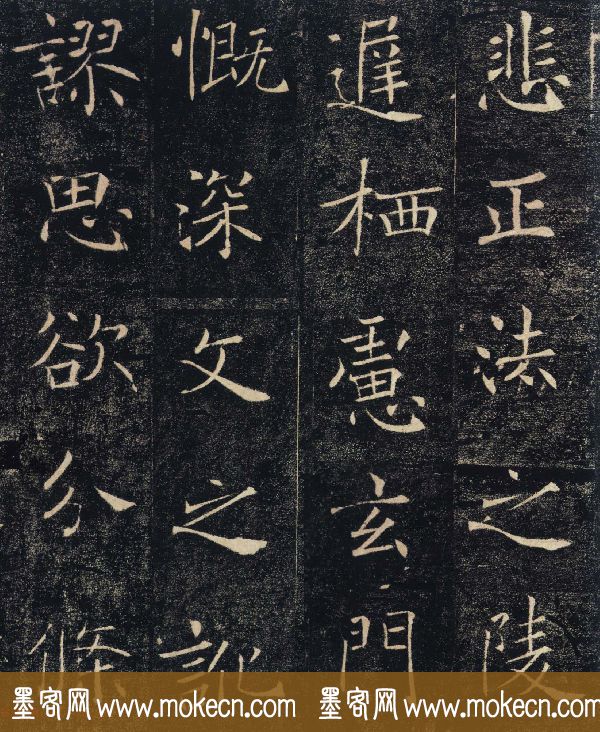 悲正法之陵
遲栖慮玄門
慨深文之訛
謬思欲分條
墨客网 www.mokecn.com 墨客网 www.mokecn.com